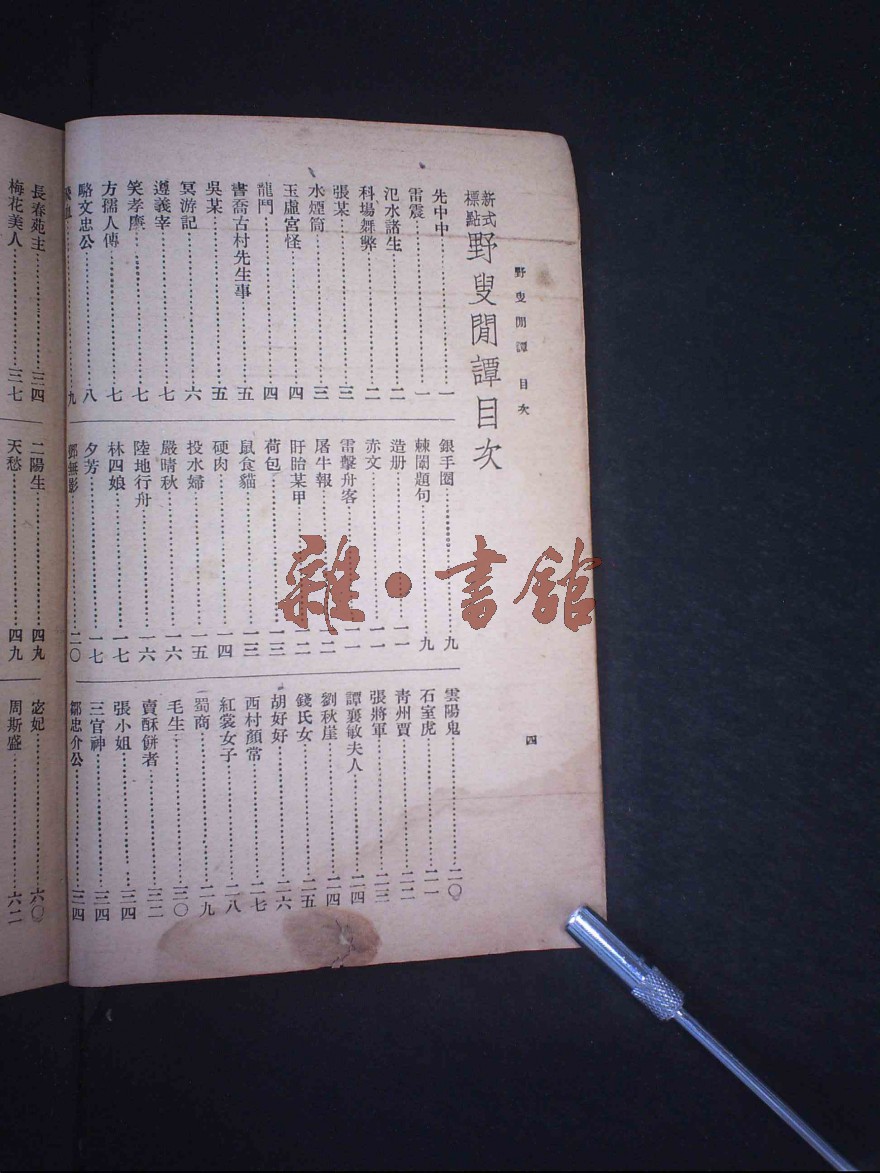 野叟閒譚 目次
四
新式標點 野叟閒譚目次
先中中……一
雷震……一
氾水諸生……二
科場舞弊……二
張某……三
水煙筒……三
玉虛宮怪……四
龍門……四
書喬古村先生事……五
吳某……五
冥游記……六
遵義宰……七
笑孝廉……七
方孺人傳……七
駱文忠公……八
……九
銀手圈……九
棘闈題句……九
造册……一一
赤文……一一
雷擊舟客……一一
屠牛報……一二
盱眙某甲……一二
荷包……一三
鼠食貓……一三
硬肉……一四
投水婦……一五
嚴晴秋……一六
陸地行舟……一六
林四娘……一七
夕芳……一七
鄧無影……二〇
雲陽鬼……二〇
石室虎……二一
青州賈……二二
張將軍……二三
譚襄敏夫人……二四
劉秋崖……二四
錢氏女……二五
胡好好……二六
西村顏常……二七
紅裳女子……二八
蜀商……二九
毛生……三〇
賣酥餅者……三二
張小姐……三四
三官神……三四
鄒忠介公……三四
長春苑主……三四
梅花美人……三七
二陽生……四九
天愁……四九
宓妃……六〇
周斯盛……六二
雜·書館